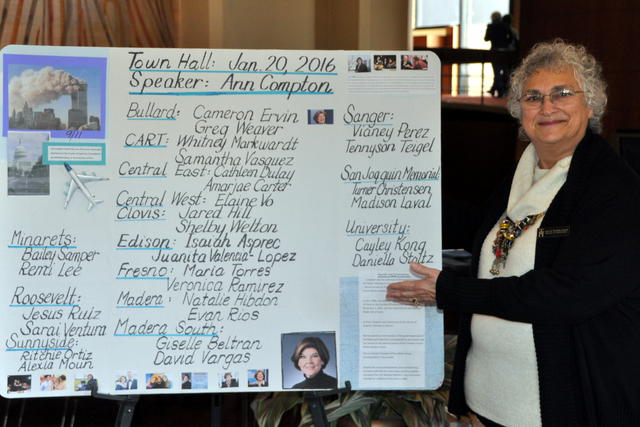 Town Hall: Jan. 20, 2016
Speaker: Ann Compton
9/11
Bullard: Cameron Ervin
Greg Weaver
CART: Whitney Markwardt
Samantha Vasquez
Central East: Cathleen Dulay
Amarjae Carter
Central West: Elaine Vo
Clovis: Jared Hill
Shelby Welton
Edison: Isaiah Asprec
Juanita Valencia-Lopez
Fresno: Maria Torres
Veronica Ramirez
Madera: Natalie Hibdon
Evan Rios
Madera South:
Giselle Beltran
David Vargas
Minarets:
Bailey Samper
Remi Lee
Roosevelt:
Jesus Ruiz
Sarai Ventura
Sunnyside:
Ritchie Ortiz
Alexia Moun
Sanger:
Vianey Perez
Tennyson Teigel
San Joaquin Memorial:
Turner Christensen
Madison Laval
University:
Cayley Kong
Daniella Stoltz